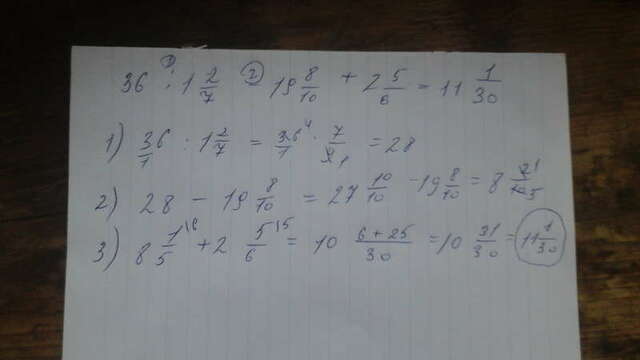 36 :① 1 2/7 ② 19 8/10 + 2 5/6 = 11 1/30
1) 36/1 : 1 2/7 = 36⁴/1 · 7/9₁ = 28
2) 28 - 19 8/10 = 27 10/10 - 19 8/10 = 8 2¹/10₅
3) 8 1\⁶/5 + 2 5\⁵/6 = 10 6+25/30 = 10 31/30 = 11 1/30